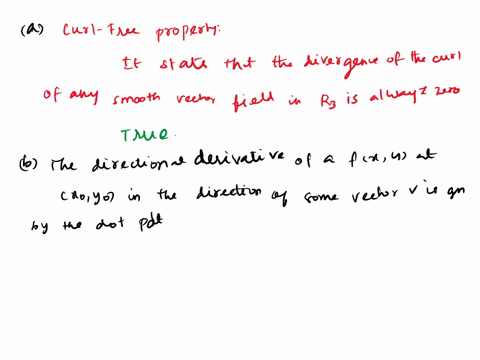 (a) Curl-Free property:
It states that the divergence of the curl
of any smooth vector field in R3 is always zero
True.
(b) The directional derivative of a f(x,y) at
(x0,y0) in the direction of some vector v is gn
by the dot pdt